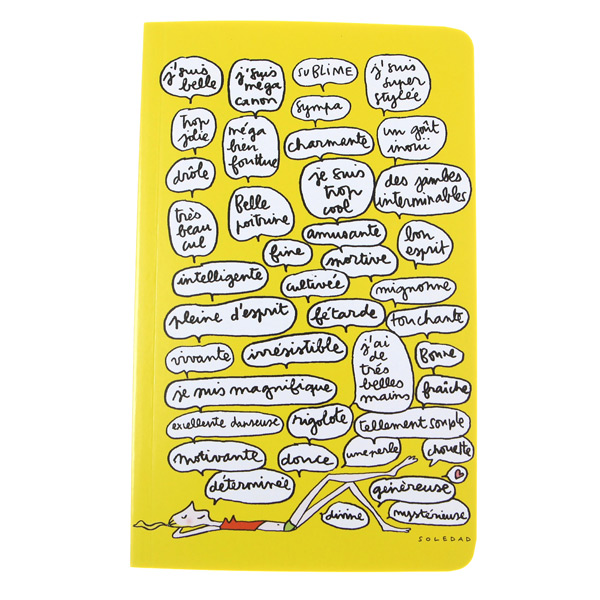 j'suis
belle
j'suis
méga
canon
SUBLIME
j'suis
super
stylée
sympa
trop
jolie
méga
bien
foutue
charmante
un goût
inouï
drôle
je suis
trop
cool
des jambes
interminables
très
beau
cul
Belle
poitrine
amusante
bon
esprit
fine
sportive
intelligente
cultivée
mignonne
pleine d'esprit
fêtarde
touchante
vivante
irrésistible
j'ai
de
très
belles
mains
Bonne
je suis magnifique
fraîche
excellente danseuse
rigolote
tellement souple
motivante
douce
une perle
chouette
déterminée
généreuse
divine
mystérieuse
SOLEDAD